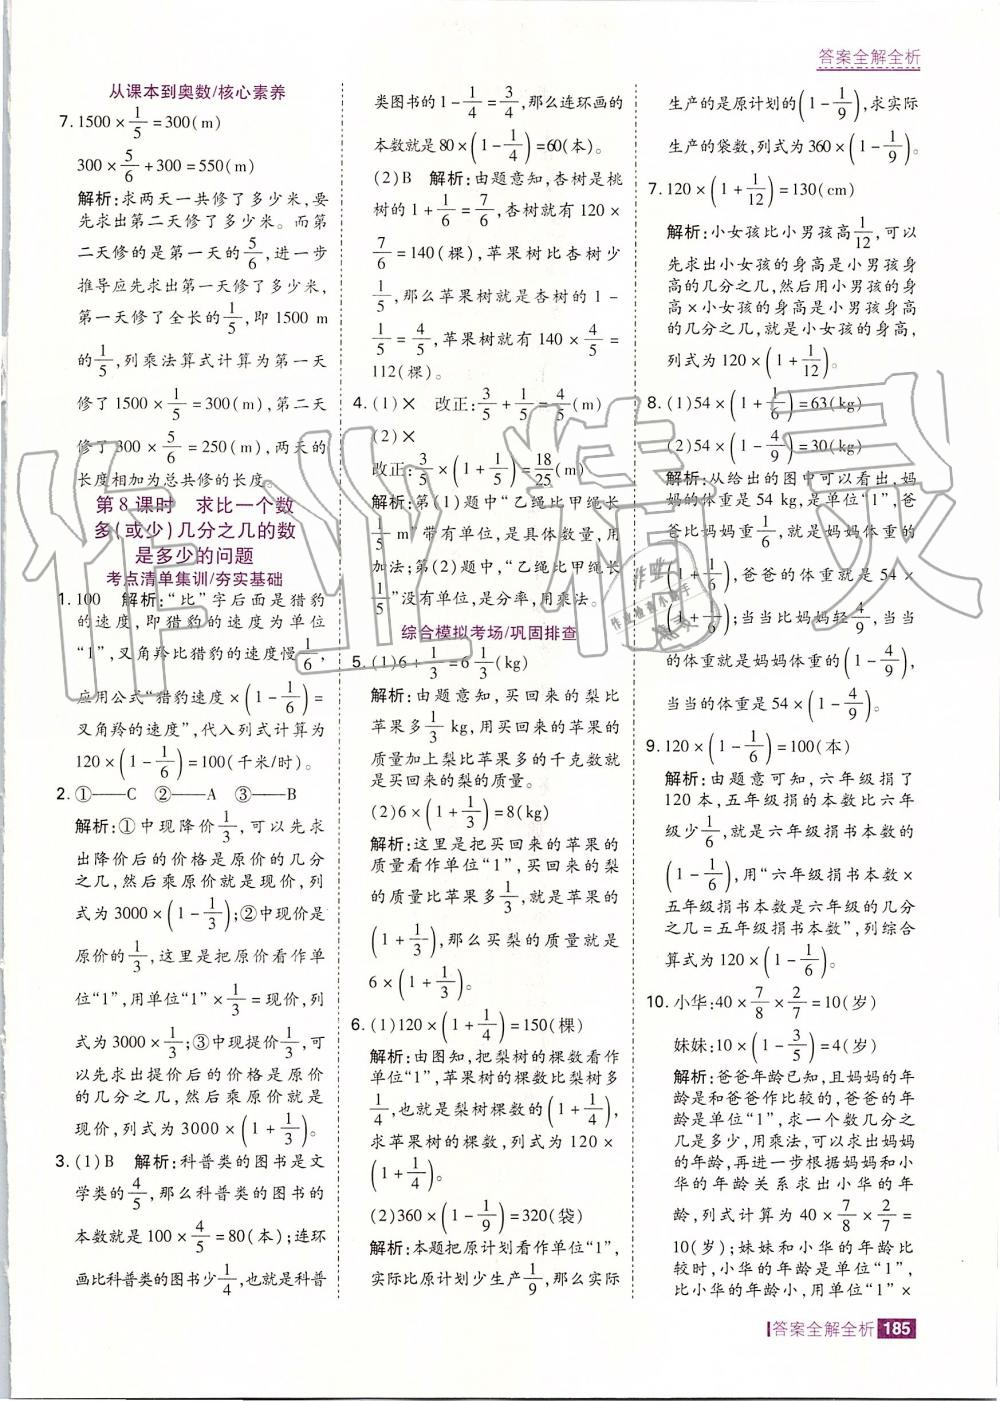 答案全解全析
从课本到奥数/核心素养
7. 1500×1/5=300(m)
300×5/6+300=550(m)
解析:求两天一共修了多少米,要
先求出第二天修了多少米。而第
二天修的是第一天的5/6,进一步
推导应先求出第一天修了多少米,
第一天修了全长的1/5,即 1500 m
的1/5,列乘法算式计算为第一天
修了 1500×1/5=300(m),第二天
修了 300×5/6=250(m),两天的
长度相加为总共修的长度。
第 8 课时 求比一个数
多(或少)几分之几的数
是多少的问题
考点清单集训/夯实基础
1. 100 解析:“比”字后面是猎豹
的速度,即猎豹的速度为单位
“1”,叉角羚比猎豹的速度慢1/6,
应用公式“猎豹速度×(1-1/6)=
叉角羚的速度”,代入列式计算为
120×(1-1/6)=100(千米/时)。
2. ①——C ②——A ③——B
解析:①中现降价1/3,可以先求
出降价后的价格是原价的几分
之几,然后乘原价就是现价,列
式为 3000×(1-1/3);②中现价是
原价的1/3,这里把原价看作单
位“1”,用单位“1”×1/3=现价,列
式为 3000×1/3;③中现提价1/3,可
以先求出提价后的价格是原价
的几分之几,然后乘原价就是
现价,列式为 3000×(1+1/3)。
3. (1)B 解析:科普类的图书是文
学类的4/5,那么科普类的图书的
本数就是 100×4/5=80(本);连环
画比科普类的图书少1/4,也就是科普
类图书的 1-1/4=3/4,那么连环画的
本数就是 80×(1-1/4)=60(本)。
(2)B 解析:由题意知,杏树是桃
树的 1+1/6=7/6,杏树就有 120×
7/6=140(棵),苹果树比杏树少
1/5,那么苹果树就是杏树的 1-
1/5=4/5,苹果树就有 140×4/5=
112(棵)。
4. (1)× 改正:3/5+1/5=4/5(m)
(2)×
改正:3/5×(1+1/5)=18/25(m)
解析:第(1)题中“乙绳比甲绳长
1/5 m”带有单位,是具体数量,用
加法;第(2)题中,“乙绳比甲绳长
1/5”没有单位,是分率,用乘法。
综合模拟考场/巩固排查
5. (1)6+1/3=6 1/3(kg)
解析:由题意知,买回来的梨比
苹果多1/3 kg,用买回来的苹果的
质量加上梨比苹果多的千克数就
是买回来的梨的质量。
(2)6×(1+1/3)=8(kg)
解析:这里是把买回来的苹果的
质量看作单位“1”,买回来的梨
的质量比苹果多1/3,就是苹果的
(1+1/3),那么买梨的质量就是
6×(1+1/3)。
6. (1)120×(1+1/4)=150(棵)
解析:由图知,把梨树的棵数看作
单位“1”,苹果树的棵数比梨树多
1/4,也就是梨树棵数的(1+1/4),
求苹果树的棵数,列式为 120×
(1+1/4)。
(2)360×(1-1/9)=320(袋)
解析:本题把原计划看作单位“1”,
实际比原计划少生产1/9,那么实际
生产的是原计划的(1-1/9),求实际
生产的袋数,列式为 360×(1-1/9)。
7. 120×(1+1/12)=130(cm)
解析:小女孩比小男孩高1/12,可以
先求出小女孩的身高是小男孩身
高的几分之几,然后用小男孩的身
高×小女孩的身高是小男孩身高
的几分之几,就是小女孩的身高,
列式为 120×(1+1/12)。
8. (1)54×(1+1/6)=63(kg)
(2)54×(1-4/9)=30(kg)
解析:从给出的图中可以看出,妈
妈的体重是 54 kg,是单位“1”,爸
爸比妈妈重1/6,就是妈妈体重的
(1+1/6),爸爸的体重就是 54×
(1+1/6);当当比妈妈轻4/9,当当
的体重就是妈妈体重的(1-4/9),
当当的体重是 54×(1-4/9)。
9. 120×(1-1/6)=100(本)
解析:由题意可知,六年级捐了
120 本,五年级捐的本数比六年
级少1/6,就是六年级捐书本数的
(1-1/6),用“六年级捐书本数×
五年级捐书本数是六年级的几分
之几=五年级捐书本数”,列综合
算式为 120×(1-1/6)。
10. 小华:40×7/8×2/7=10(岁)
妹妹:10×(1-3/5)=4(岁)
解析:爸爸年龄已知,且妈妈的年
龄是和爸爸作比较的,爸爸的年
龄是单位“1”,求一个数几分之
几是多少,用乘法,可以求出妈妈
的年龄,再进一步根据妈妈和小
华的年龄关系求出小华的年
龄,列式计算为 40×7/8×2/7=
10(岁);妹妹和小华的年龄比
较时,小华的年龄是单位“1”,
比小华的年龄小,用单位“1”×
答案全解全析 185
作业精灵